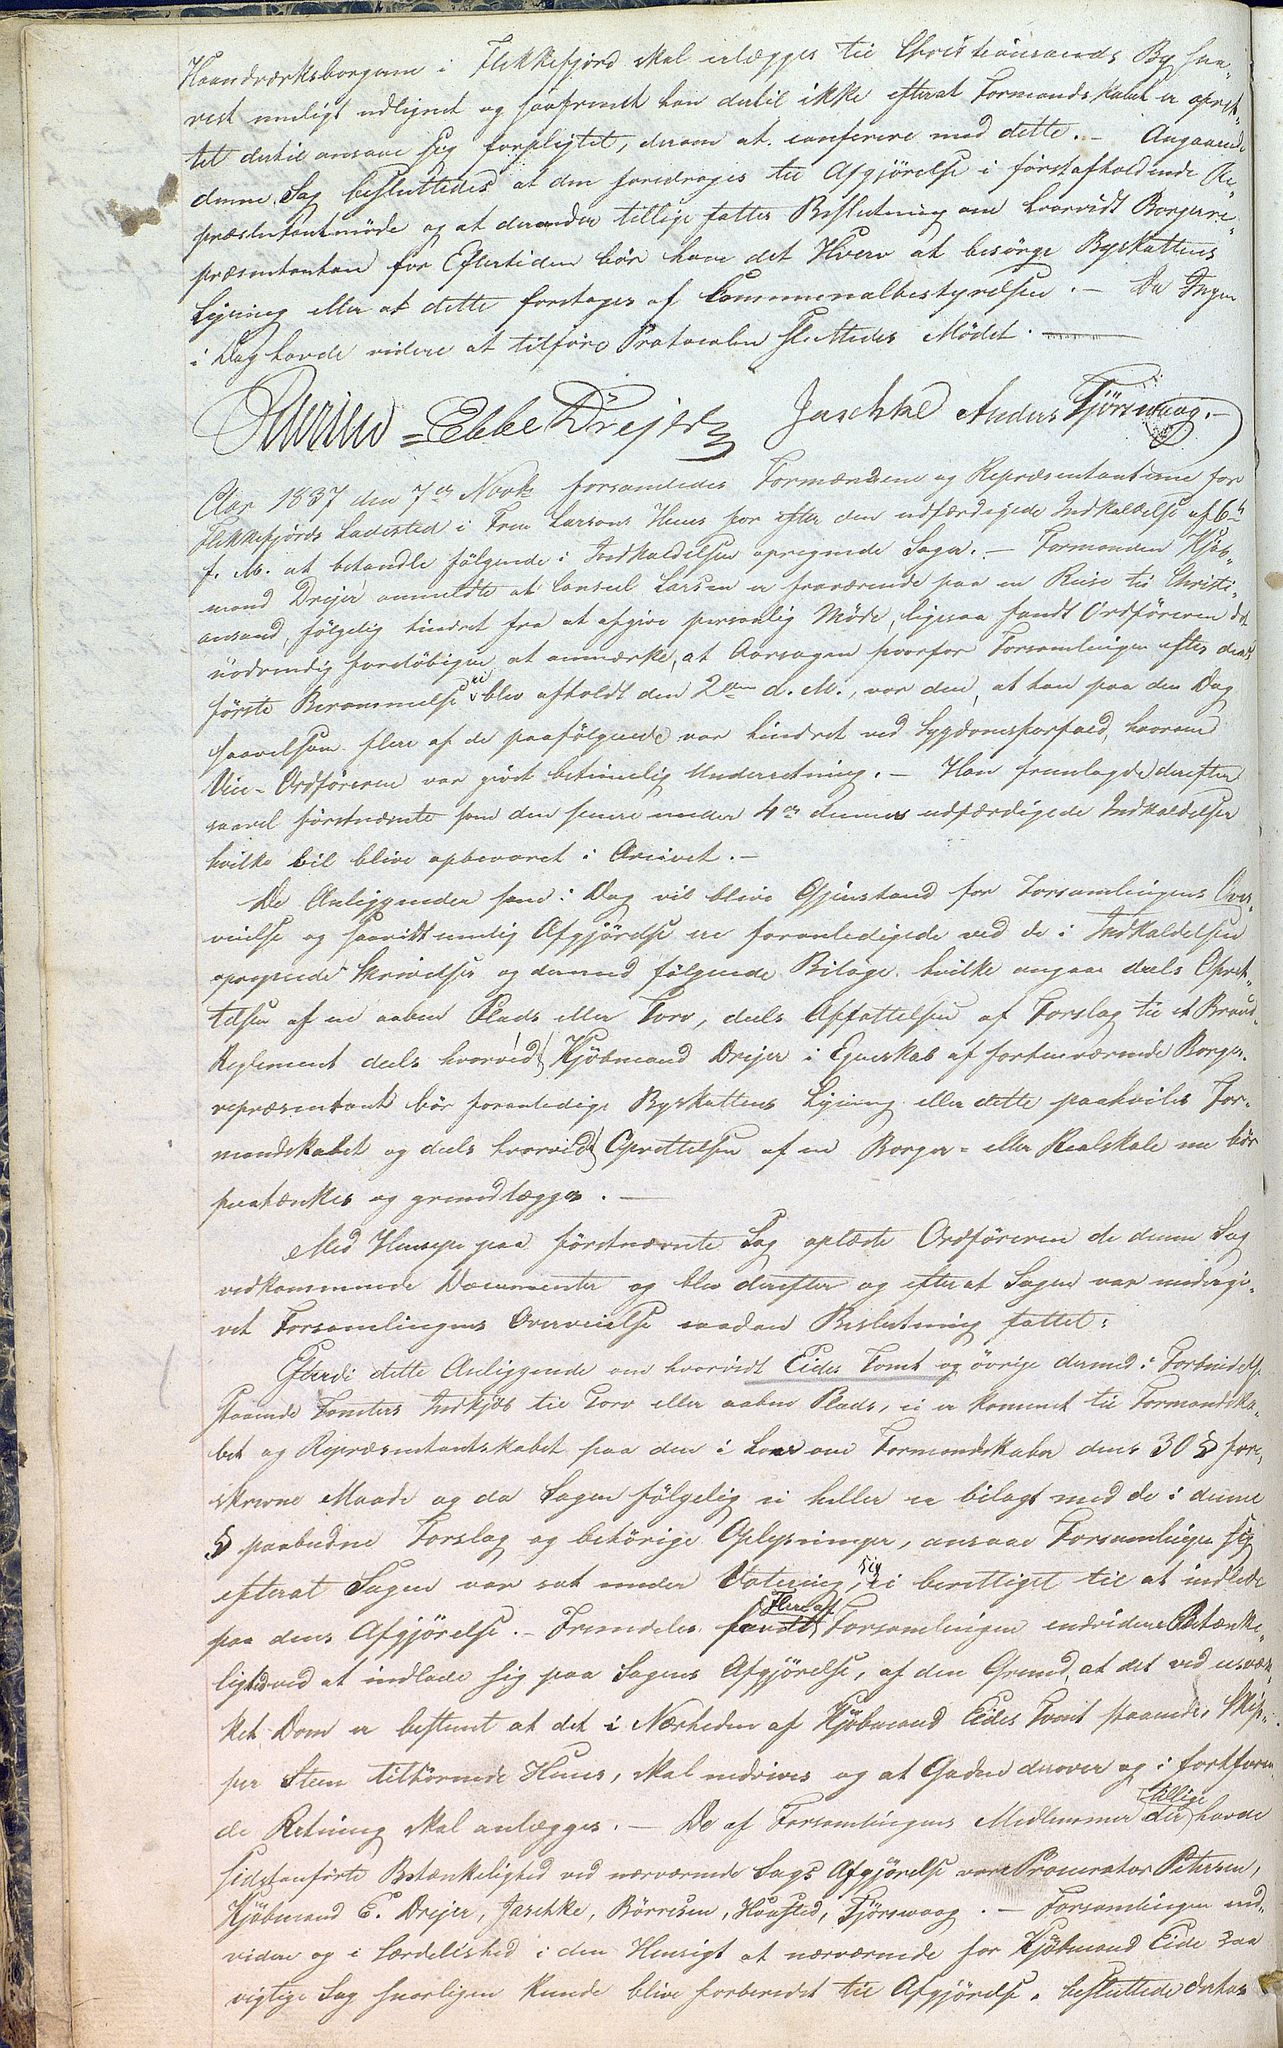 Haandværksborgerne i Flekkefjord skal erlægges til Christiansands By snar„
rest muligt udlignet og saafremt han dertil ikke efterat Formandskabet er opret„
tet dertil ansaae sig forpligtet, derom at conferere med dette. – Angaaende
denne Sag besluttedes at den foredrages til Afgjörelse i förstafholdende Re„
præsentantmöde og at derunder tillige fattes Beslutning om hvorvidt Borgerre„
præsentanten for Eftertiden bör have det Hverv at besörge Byskattens
Ligning eller at dette foretages af Communalbestyrelsen. – Da Ingen
i Dag havde videre at tilföre Protocolen sluttedes Mödet.
Petersen Ebbe Drejer Jaschke Anders Tjörsvaag.
Aar 1837 den 7de Novbr forsamledes Formændene og Repræsentanterne for
Flekkefjords Ladested i Frue Larsens Huus for efter den udfærdigede Indkaldelse af 6te
f. M. at behandle fölgende i Indkaldelsen opregnede Sager. – Formanden Kjöb„
mand Drejer anmeldte at Consul Larsen er fraværende paa en Reise til Christi„
ansand, fölgelig hindret fra at afgive personlig Möde, ligesaa fandt Ordföreren det
nödvendig forelöbigen at anmærke, at Aarsagen hvorfor Forsamlingen efter dens
förste Berammelse ei blev afholdt den 2den d. M., var den, at han paa den Dag
saavelsom flere af de paafölgende var hindret ved Sygdomsforfald, hvorom
Vice-Ordföreren var givet betimelig Underretning. – Han fremlagde derefter
saavel förstnævnte som den senere under 4de dennes udfærdigede Indkaldelse
hvilke vil blive opbevaret i Arcivet. –
De Anliggender som i Dag vil blive Gjenstand for Forsamlingens Over„
veielse og saavidt mulig Afgjörelse ere foranledigede ved de i Indkaldelsen
opregnede Skrivelser og dermed fölgende Bilage hvilke angaae deels Opret„
telsen af en aaben Plads eller Torv, deels Affattelsen af Forslag til et Brand„
Reglement deels hvorvidt Kjöbmand Drejer i Egenskab af fortsværende Borger„
repræsentant bör foranledige Byskattens Ligning eller dette paahviler For„
mandskabet og deels hvorvidt Oprettelsen af en Borger- eller Realskole nu bör
paatænkes og grundlægges. –
Med Hensyn paa förstnævnte Sag oplæste Ordföreren de denne Sag
vedkommende Documenter og blev derefter og efterat Sagen var undergi„
vet Forsamlingens Overveielse saadan Beslutning fattet:
Efterdi dette Anliggende om hvorvidt Eides Tomt og övrige dermed i Forbindelse
staaende Tomters Indkjöb til Torv eller aaben Plads, ei er kommet til Formandska„
bet og Repræsentantskabet paa den i Loven om Formandskaber dens 30 § fore„
skrevne Maade og da Sagen fölgelig ei heller er bilagt med de i denne
§ paabudne Forslag og behörige Oplysninger, ansaae Forsamlingen sig
efterat Sagen var sat under Votering, sig ei berettiget til at indlede
paa dens Afgjörelse. – Fremdeles fandt Flere af Forsamlingen endvidere Betænke„
lighed ved at indlade sig paa Sagens Afgjörelse, af den Grund, at det ved usvæk„
ket Dom er bestemt at det i Nærheden af Kjöbmand Eides Tomt staaende, Skip„
per Steen tilhörende Huus, skal nedrives og at Gaden derover og i fortsæt
de Retning skal anlægges. – De af Forsamlingens Medlemmer der tillige havde
sidstanförte Betænkelighed ved nærværende Sags Afgjörelse vare Procurator Petersen,
Kjöbmand E. Drejer, Jaschke, Börresen, Haasted, Tjörsvaag. – Forsamlingen end„
videre og i Særdeleshed i den Hensigt at nærværende for Kjöbmand Eide saa
vigtige Sag snarligen kunde blive forberedet til Afgjörelse, besluttede